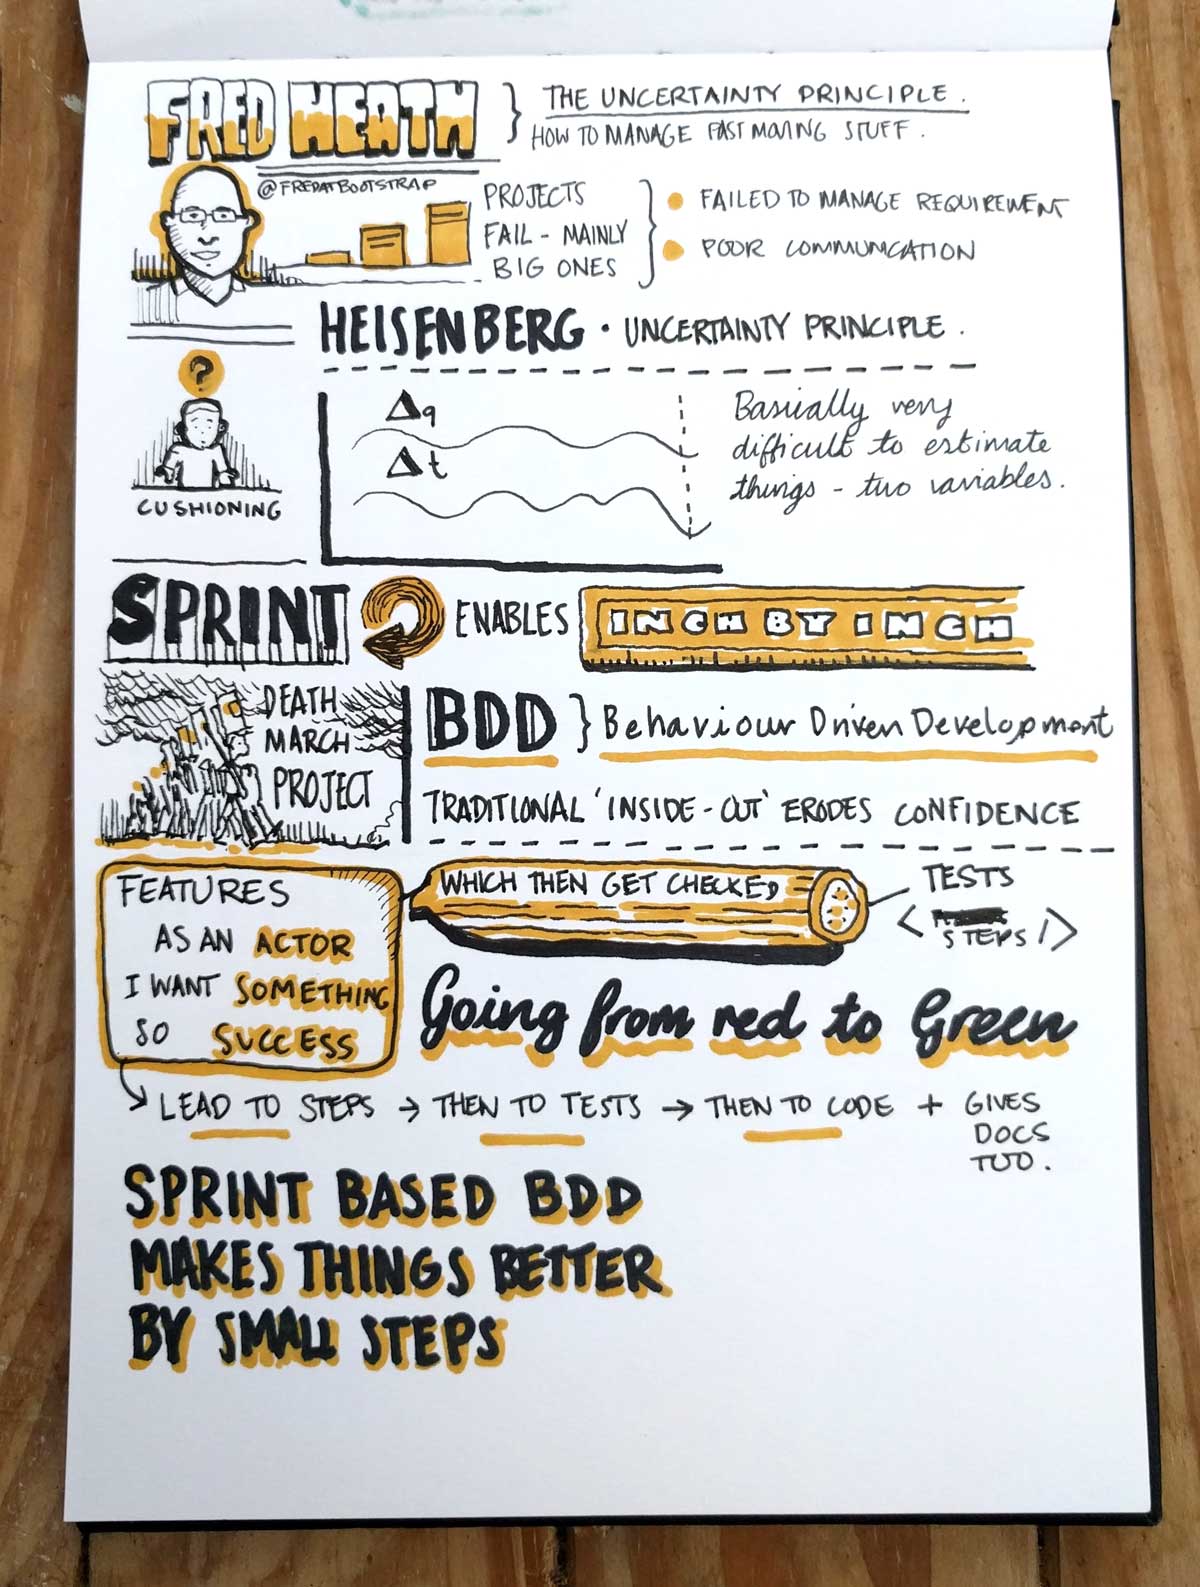 FRED HEATH
THE UNCERTAINTY PRINCIPLE.
HOW TO MANAGE FAST MOVING STUFF.
@FREDATBOOTSTRAP
PROJECTS
FAIL - MAINLY
BIG ONES
FAILED TO MANAGE REQUIREMENT
POOR COMMUNICATION
HEISENBERG · UNCERTAINTY PRINCIPLE.
?
CUSHIONING
Δq
Δt
Basically very
difficult to estimate
things - two variables.
SPRINT
ENABLES
INCH BY INCH
DEATH
MARCH
PROJECT
BDD } Behaviour Driven Development
TRADITIONAL 'INSIDE-OUT' ERODES CONFIDENCE
FEATURES
AS AN ACTOR
I WANT SOMETHING
SO SUCCESS
WHICH THEN GET CHECKED
TESTS
< STEPS />
Going from red to Green
LEAD TO STEPS → THEN TO TESTS → THEN TO CODE + GIVES
DOCS
TOO.
SPRINT BASED BDD
MAKES THINGS BETTER
BY SMALL STEPS